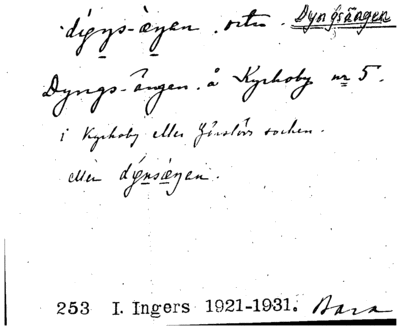 dýŋs-æŋen. Dyngsängen
Dyngs-ängen. å Kyrkoby nr 5.
i Kyrkoby eller socken.
eller dýnsæŋen.
253 I. Ingers 1921-1931. Bara